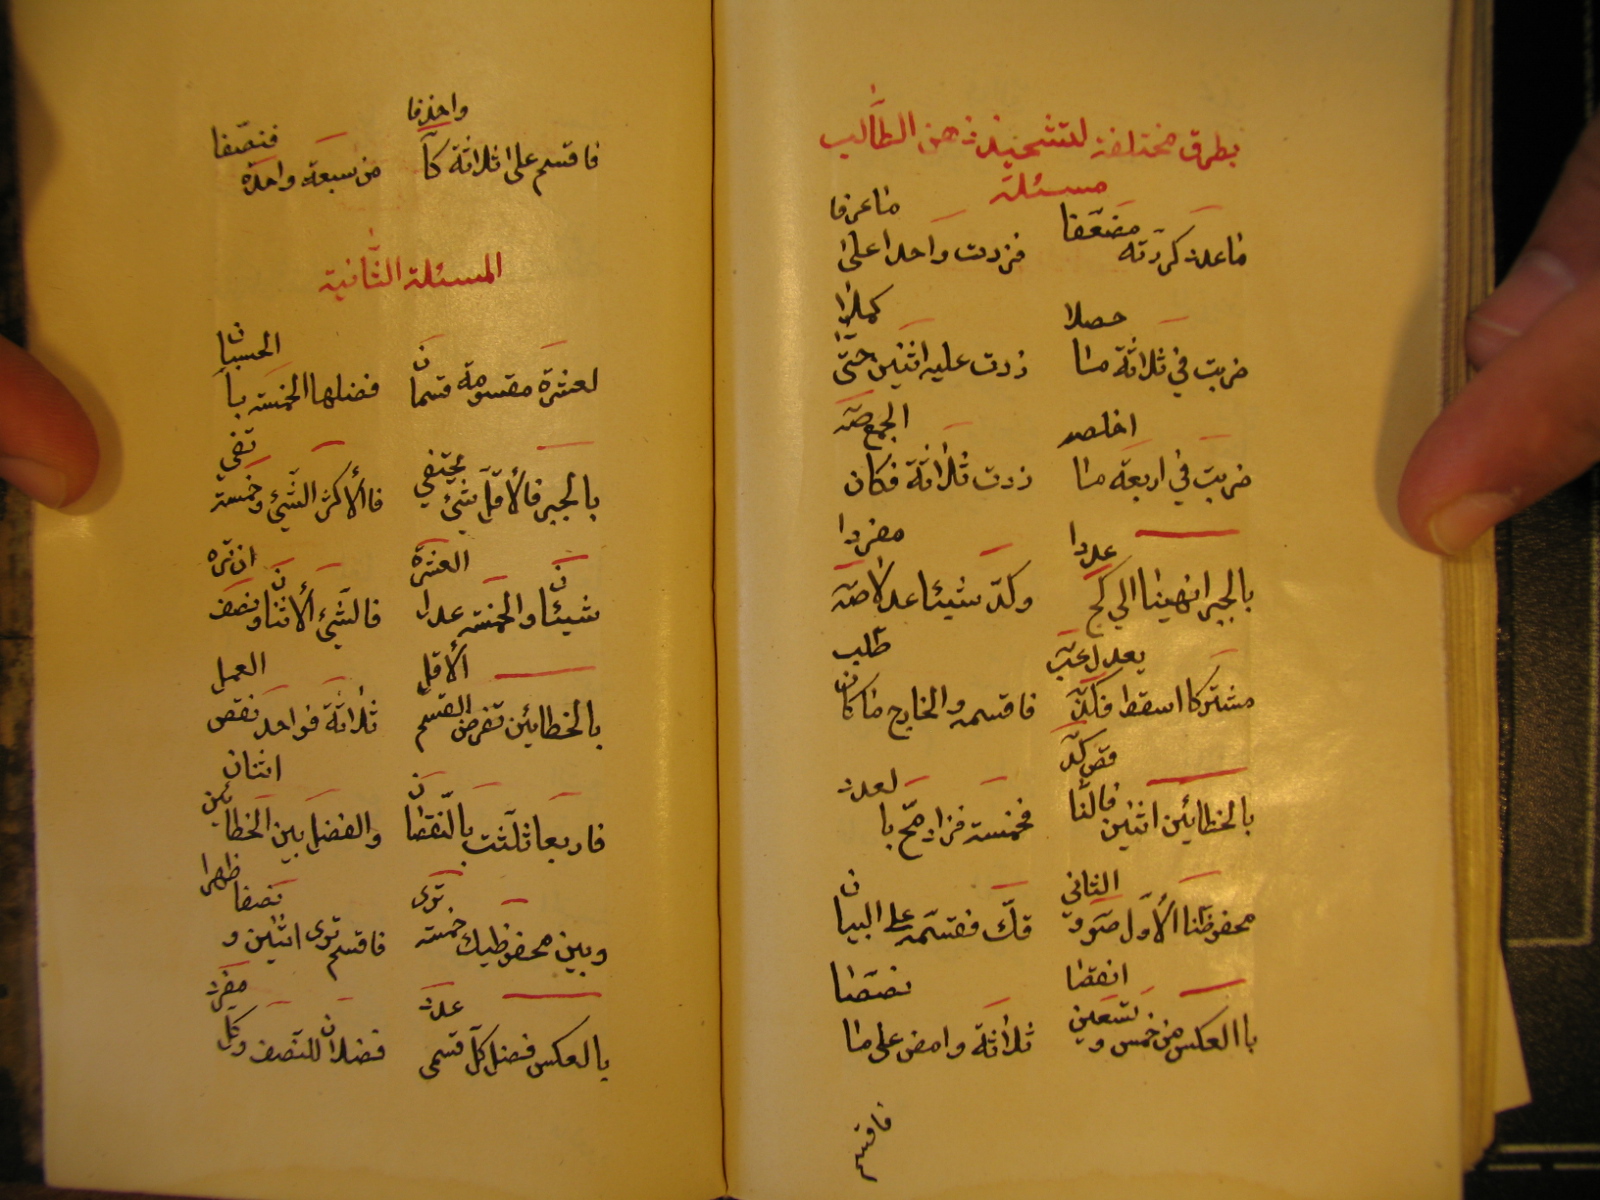 بطرق مختلفة لتشحيذ ذهن الطالب
مسئلة
ما عدد كررته مضعفا فزدت واحدا على ما عرفا
ضربت في ثلاثة ما حصلا زدت عليه اثنين حتى كملا
ضربت في اربعة ما اخلصه زدت ثلاثة فكان الجمع صه
بالجبر انهينا الى كج عددا وكد شيئا عدلا صه مفردا
مشتركا اسقط فكد يعدل فاقسمه والخارج ما كان طلب
بالخطائين اثنين فالنا قص كد فخمسة فزاد مح با لعدد
محفوظنا الاول صو و الثاني قك فقسمه على البيان
باالعكس من خمس و تسعين انقصا ثلاثة وامض على ما نصصا
فاقسم
فاقسم على ثلاثة كا واحذفا من سبعة واحدة فنصفا
المسئلة الثانية
لعشرة مقسومة قسمان فضلها الخمسة با الحسبان
بالجبر فالأقل شئ يختفي فاألاكثر الشئ وخمسة تفي
شيئان والخمسة عدل العشرة فالشئ ألاثنان ونصف ان تره
بالخطائين تفرض القسم ألاقل ثلاثة فواحد نقص العمل
فاربعا ثلثت بالنقصان والفضل بين الخطائين اثنان
وبين محفوظيك خمسة ترى فاقسم ترى اثنين و نصفا ظهرا
بالعكس فضل كل قسمى عدد فضلان للنصف وكل مفرد